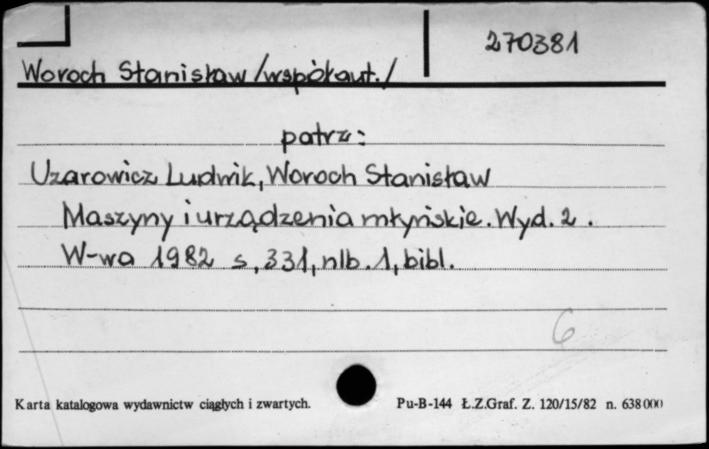 270381
Woroch Stanisław /współaut./
patrz:
Uzarowicz Ludwik, Woroch Stanisław
Maszyny i urządzenia młyńskie. Wyd. 2.
W-wa 1982 s, 331, nlb. 1, bibl.
6
Karta katalogowa wydawnictw ciągłych i zwartych. Pu-B-144 Ł.Z.Graf. Z. 120/15/82 n. 638000